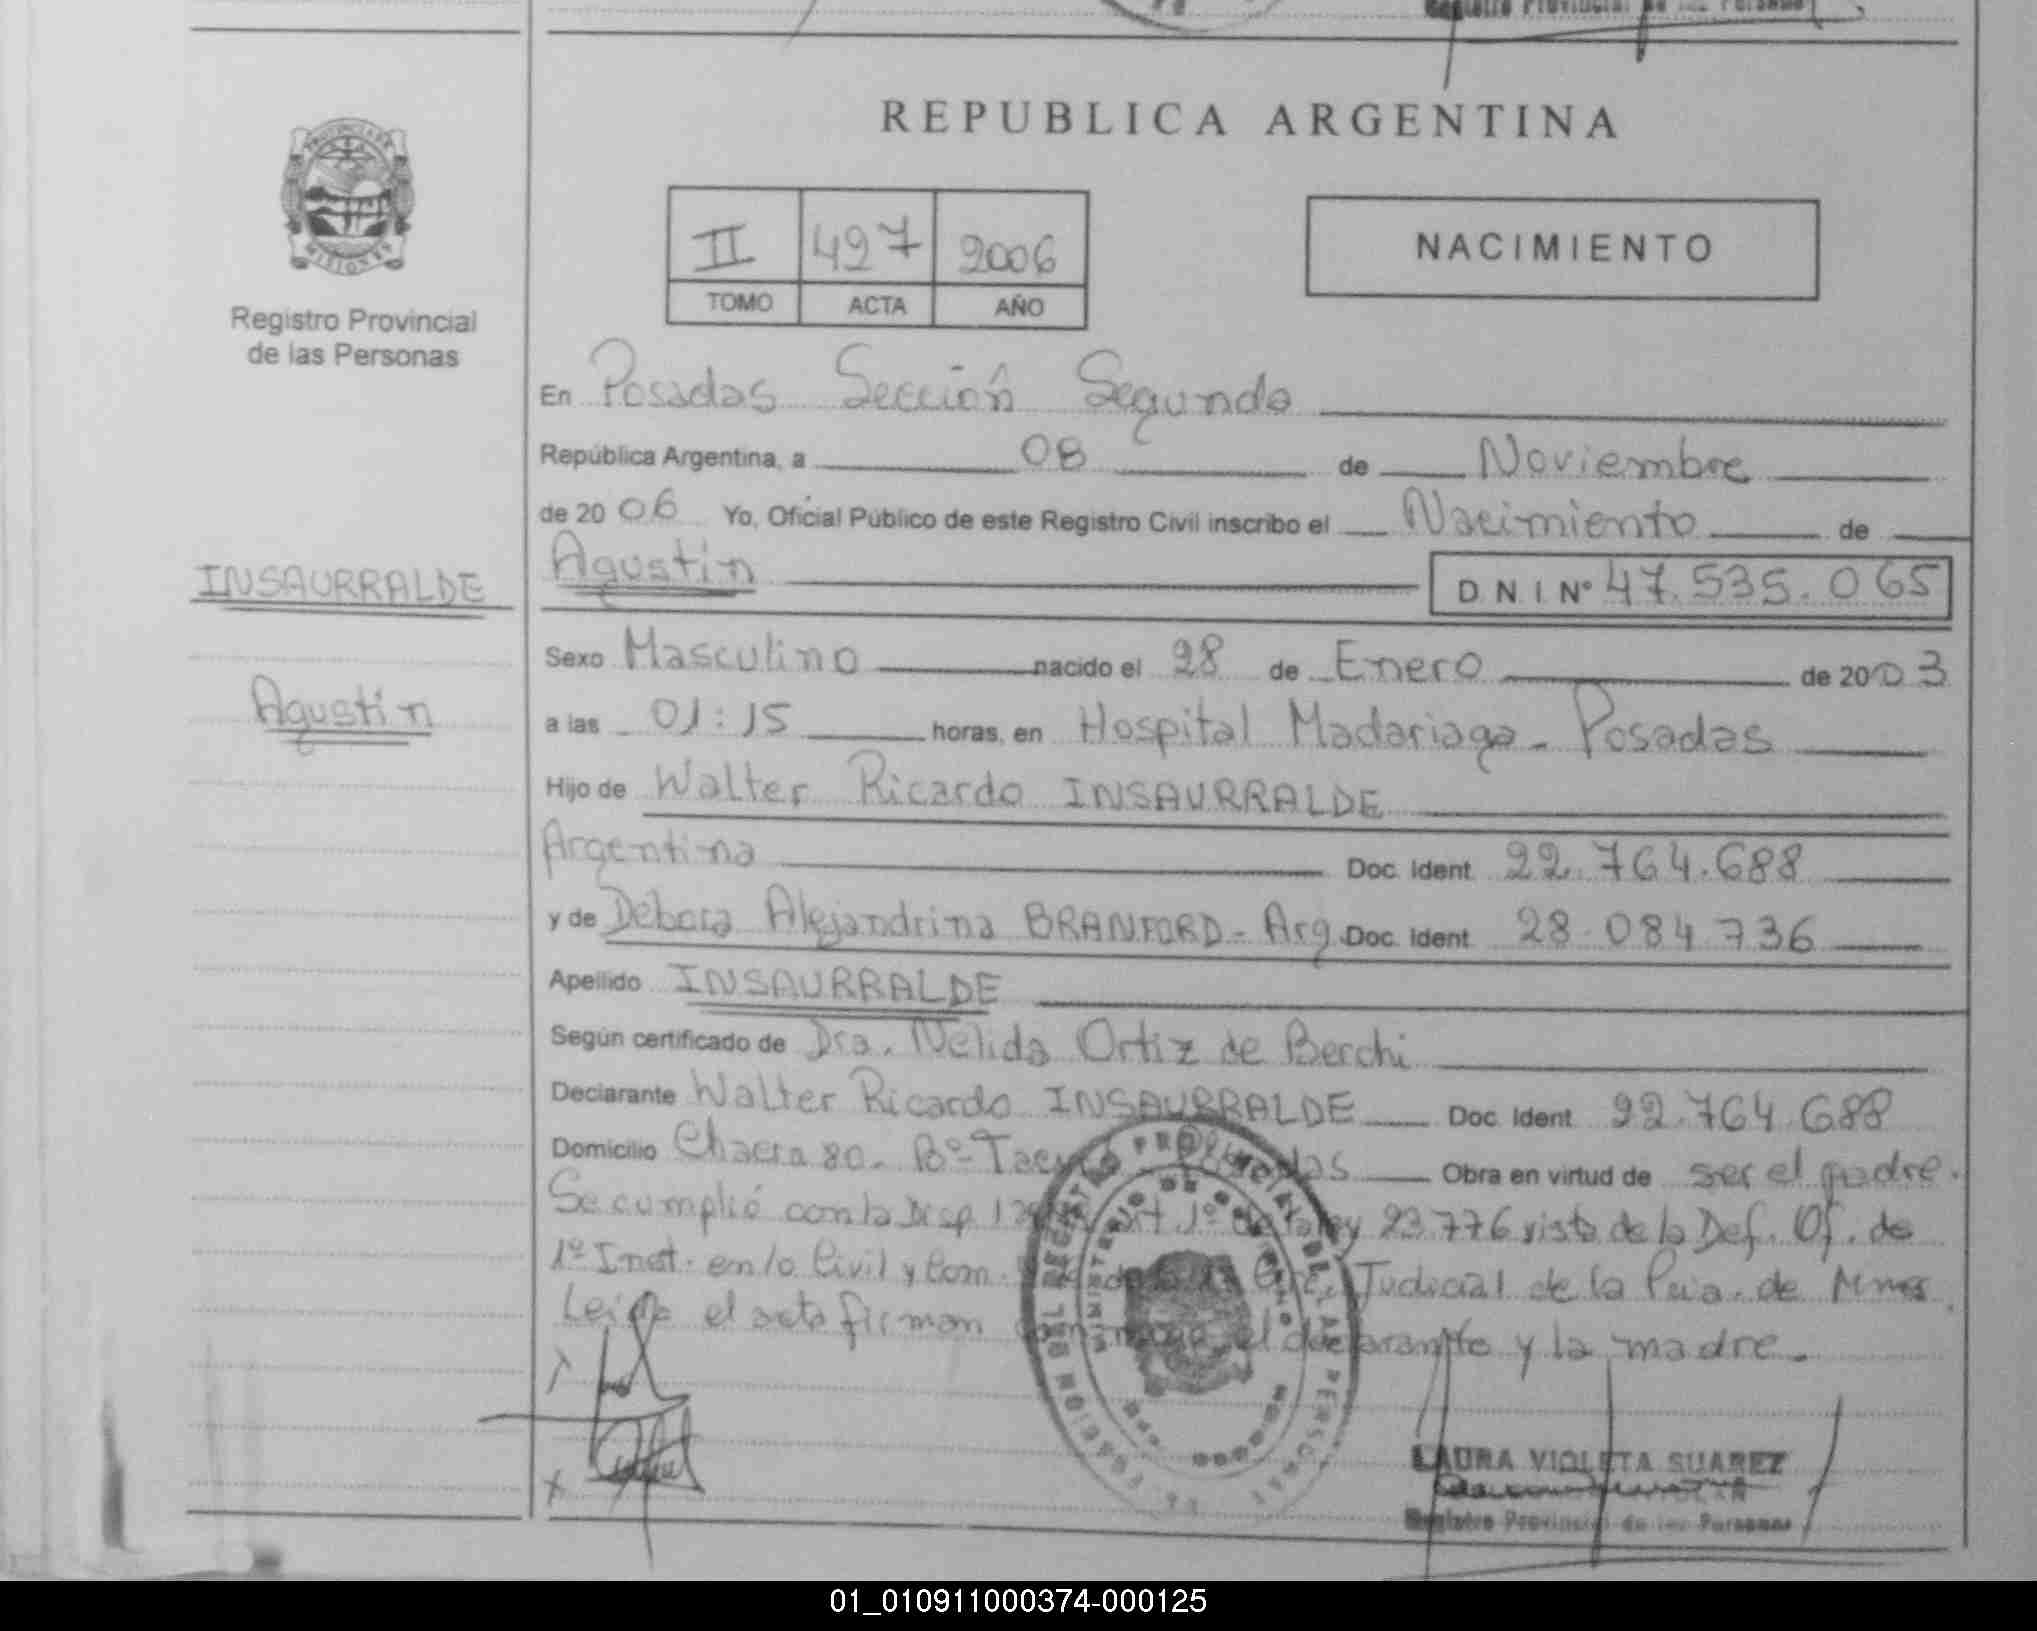 REPUBLICA ARGENTINA
PROVINCIA DE
MISIONES
Registro Provincial
de las Personas
II 427 2006
TOMO ACTA AÑO
NACIMIENTO
En Posadas Sección Segunda
República Argentina, a 08 de Noviembre
de 2006 Yo, Oficial Público de este Registro Civil inscribo el Nacimiento de
INSAURRALDE
Agustin
Agustin D.N.I. Nº 47.535.065
Sexo Masculino nacido el 28 de Enero de 2003
a las 01:15 horas, en Hospital Madariaga - Posadas
Hijo de Walter Ricardo INSAURRALDE
Argentina Doc. Ident. 22.764.688
y de Debora Alejandrina BRANFORD - Arg. Doc. Ident. 28.084.736
Apellido INSAURRALDE
Según certificado de Dra. Nelida Ortiz de Berchi
Declarante Walter Ricardo INSAURRALDE Doc. Ident. 22.764.688
Domicilio Chacra 80. Bº Obra en virtud de ser el padre.
Se cumplió con la Disp. art. 1º de la ley 23.776 vista de la Def. Of. de
1º Inst. en lo Civil y Com. Judicial de la Pcia. de Mnes.
Leida el acta firman el declarante y la madre.
LAURA VIOLETA SUAREZ
Registro Provincial de las Personas
01_010911000374-000125